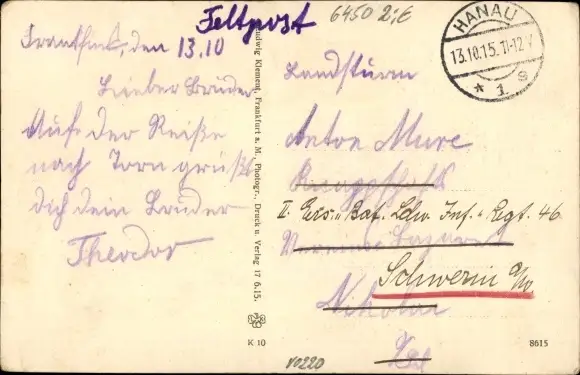 Feltpost
6450
HANAU
13.10.15. 11-12V
* 1. g
Frankfurt, den 13.10
Lieber Bruder
Aufe der Reiße
nach Torn grüßt
dich dein Bruder
Theodor
Ludwig Klement, Frankfurt a. M., Photogr., Druck u. Verlag 17 6.15.
K 10
Landsturm
Anton Murc
II. Ers. Bat. Ldw. Inf. Regt. 46
Schwerin a/W
Nikolai
8615